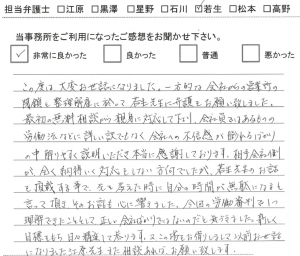 担当弁護士 □江原 □黒澤 □星野 □石川 ☑若生 □松本 □高野
当事務所をご利用になったご感想をお聞かせ下さい。
☑ 非常に良かった □ 良かった □ 普通 □ 悪かった
この度は大変お世話になりました。一方的な会社からの営業所の
閉鎖と整理解雇に於て若生先生に弁護をお願い致しました。
最初の無料相談から親身に対応して下り、会社員ではあるものの
労働法などに詳しい訳でなく会社への不信感が
の中解りやすく説明いただき本当に感謝しております。相手会社側
が、全く和解に対応としない方向でしたが、若生先生のお話
も頂戴する事で、先を考えた時に自分の時間が無駄になると
言って頂き、そのお話も心に響きました。今回の労働審判で1つ
理解できたこととして正しい会社ばかりでないのだと気づきました。新しく
目標をもち日々精進して参ります。この場をお借りしまして以前お世話
になりました江原先生また相談あれば、お願い致します。